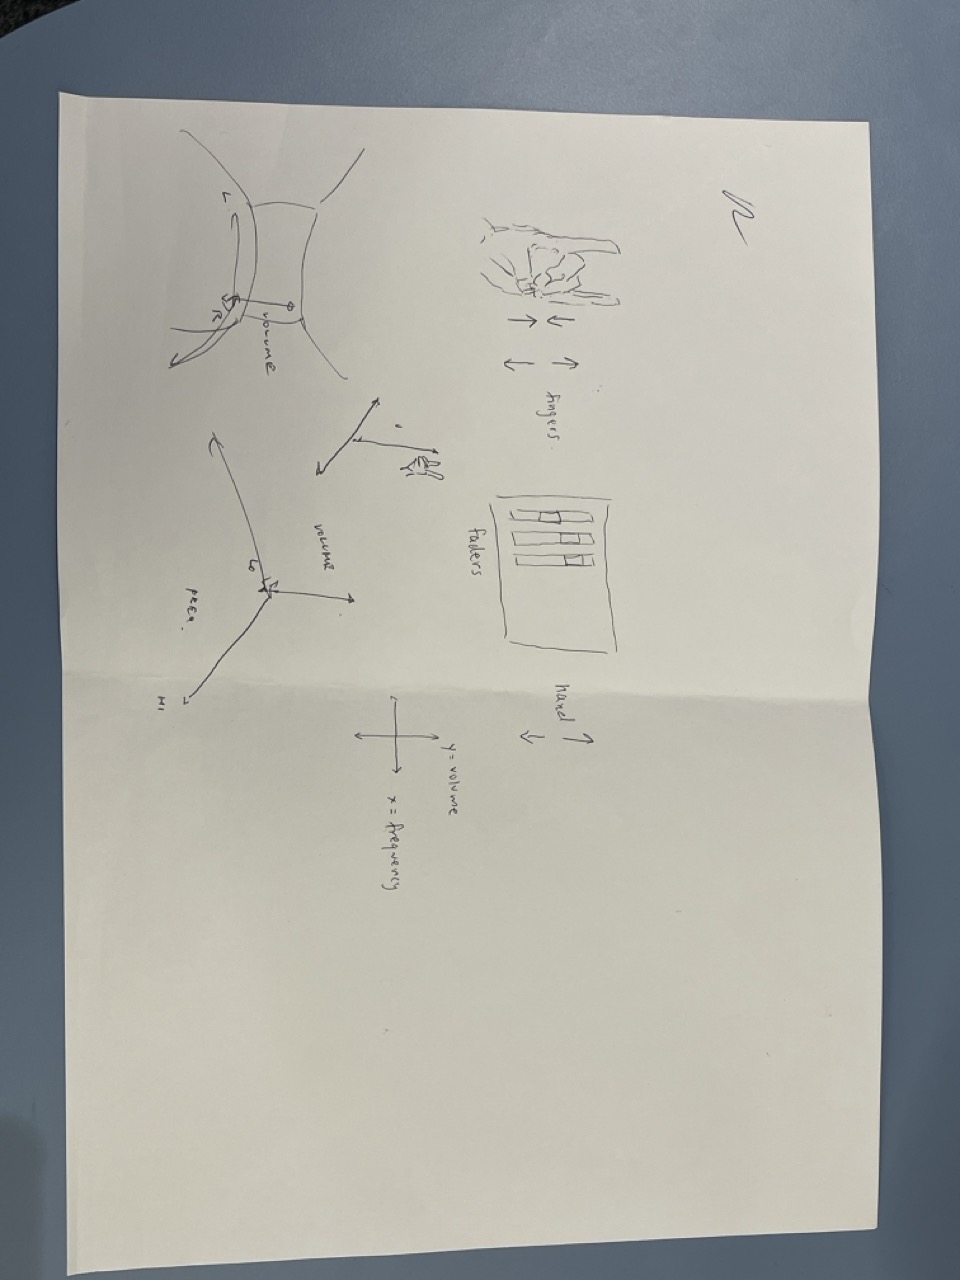 fingers.
hand
faders
y = volume
x = frequency
VOLUME
VOLUME
L
R
LO
FREQ.
HI